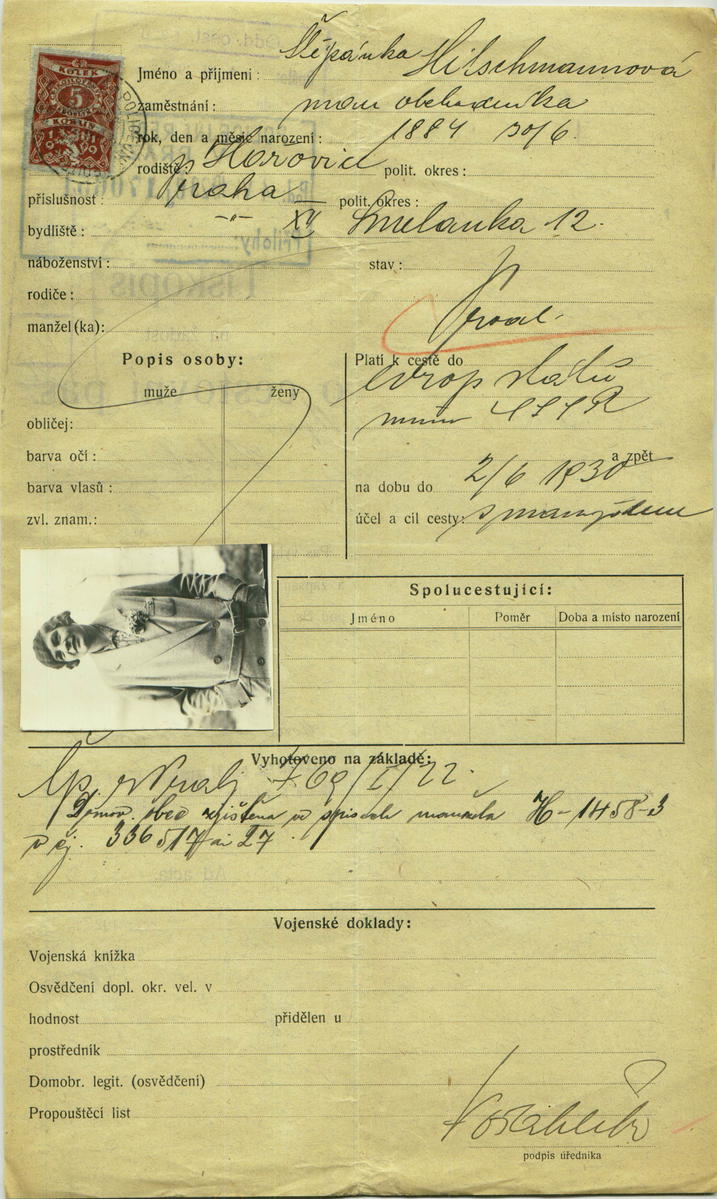 KOLEK
5
Jméno a příjmení: Štěpánka Hitschmannová
zaměstnání: man obchodníka
rok, den a měsíc narození: 1884 30/6
rodiště: Hořovice polit. okres:
příslušnost: Praha polit. okres:
bydliště: -"- XII Smetanka 12.
náboženství: stav:
rodiče:
manžel(ka):
Popis osoby:
muže ženy
obličej:
barva očí:
barva vlasů:
zvl. znam.:
Platí k cestě do evrop států
mimo SSSR
a zpět
na dobu do 2/6 1930
účel a cíl cesty: s manželem
Spolucestující:
Jméno Poměr Doba a místo narození
Vyhotoveno na základě:
769/I/22.
Domov. obec zjištěna ve spisech manžela H-1458-3
v čj. 336517 ai 27
Vojenské doklady:
Vojenská knížka
Osvědčení dopl. okr. vel. v
hodnost přidělen u
prostředník
Domobr. legit. (osvědčení)
Propouštěcí list
podpis úředníka